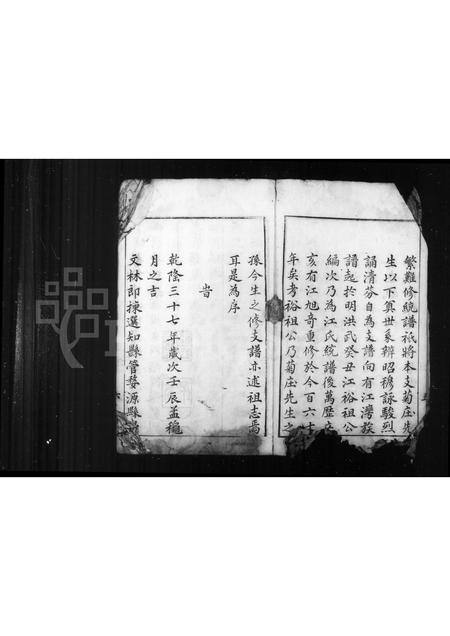 繁難修統譜祇將本支菊庄先
生以下奠世系辨昭穆詠駿烈
誦清芬自為支譜向有江灣族
譜起於明洪武癸丑江裕祖公
編次乃為江氏統譜後萬曆
亥有江旭奇重修於今百六十
年矣考裕祖公乃菊庄先生之
孫今生之修支譜亦述祖志焉
耳是為序
旹
乾隆三十七年歲次壬辰孟穐
月之吉
文林郎揀選知縣管婺源縣